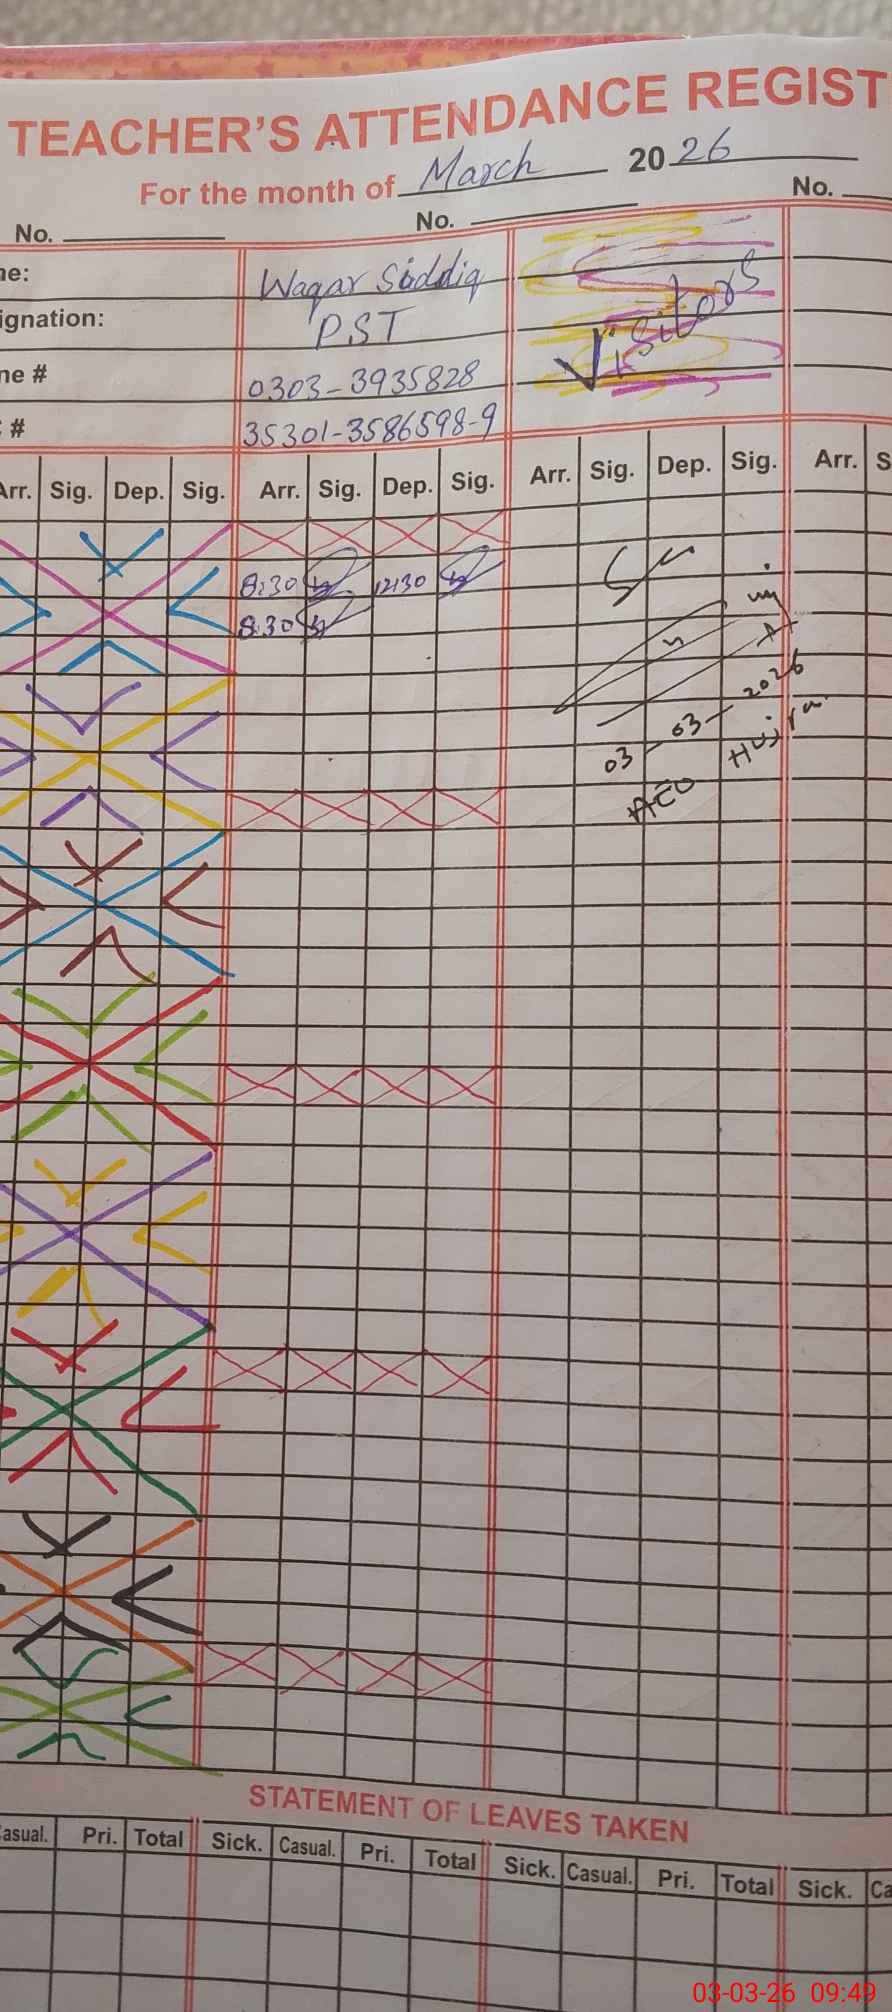 TEACHER'S ATTENDANCE REGIST
For the month of March 2026
No. No. No.
ne: Waqar Siddiq
ignation: PST
ne # 0303-3935828
# 35301-3586598-9
Visitors
Arr. Sig. Dep. Sig. Arr. Sig. Dep. Sig. Arr. Sig. Dep. Sig. Arr. S
8:30 12:30
8:30
03-03-2026
AEO Hujra
STATEMENT OF LEAVES TAKEN
asual. Pri. Total Sick. Casual. Pri. Total Sick. Casual. Pri. Total Sick. Ca
03-03-26 09:49